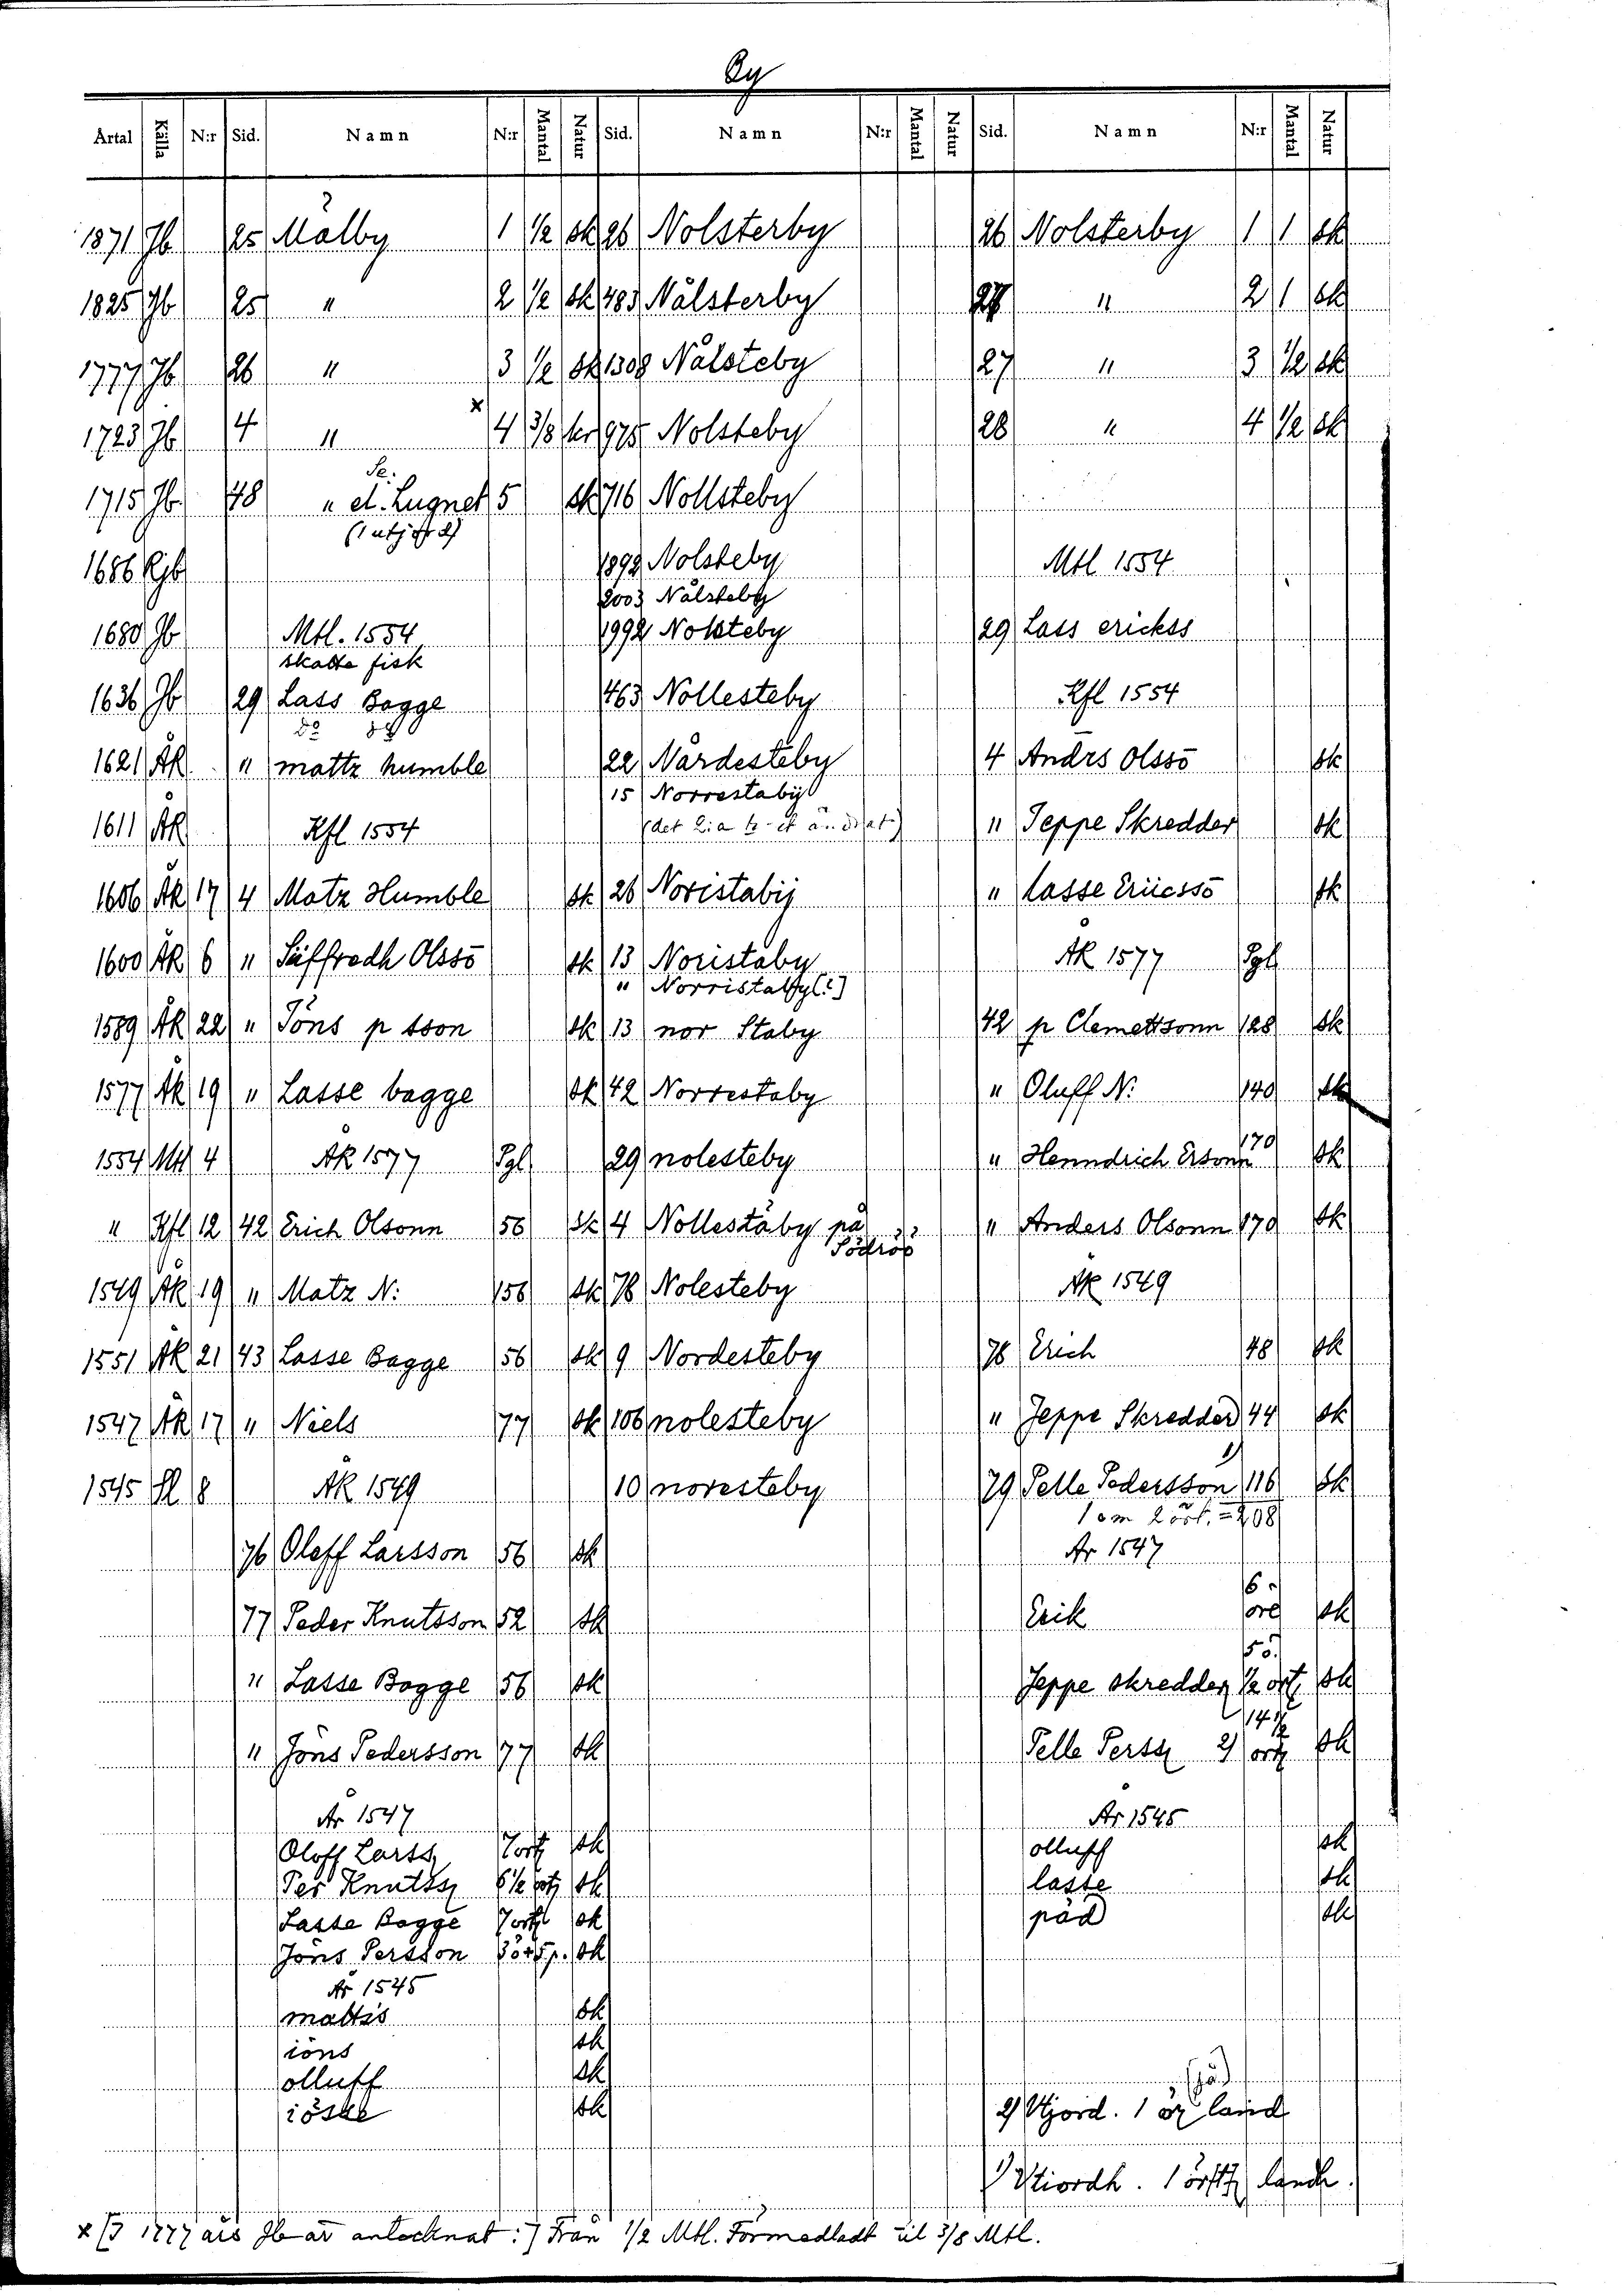 By
Årtal Källa N:r Sid. Namn N:r Mantal Natur Sid. Namn N:r Mantal Natur Sid. Namn N:r Mantal Natur
1871 Jb 25 Målby 1 1/2 sk 26 Nolsterby 26 Nolsterby 1 1 sk
1825 Jb 25 " 2 1/2 sk 483 Nålsterby 27 " 2 1 sk
1777 Jb 26 " 3 1/2 sk 1308 Nålsteby 27 " 3 1/2 sk
1723 Jb 4 " x 4 3/8 kr 975 Nolsteby 28 " 4 1/2 sk
1715 Jb 48 " el. Lugnet 5 sk 716 Nollsteby
(1 utjord)
1686 Rjb 1892 Nolsteby Mtl 1554
2003 Nålsteby
1680 Jb Mtl. 1554 1992 Nolsteby 29 Lass erickss
skatte fisk
1636 Jb 29 Lass Bagge 463 Nollesteby Kfl 1554
1621 ÅK " mattz humble 22 Nårdesteby 4 Andrs Olssō sk
15 Norrestabij
1611 ÅK Kfl 1554 " Jeppe Skredder sk
1606 ÅK 17 4 Matz Humble sk 26 Noristabij " Lasse Ericssō sk
1600 ÅK 6 " Siffredh Olssō sk 13 Noristaby ÅK 1577 Pgl
" Norristaby[?]
1589 ÅK 22 " Jöns p sson sk 13 nor Staby 42 p Clemettsonn 128 sk
1577 ÅK 19 " Lasse bagge sk 42 Norrestaby " Oluff N: 140 sk
1554 Mtl 4 ÅK 1577 Pgl 29 nolesteby " Henndrich Ersonn 170 sk
" Kfl 12 42 Erich Olsonn 56 sk 4 Nollestäby på " Anders Olsonn 170 sk
Södröö
1549 ÅK 19 " Matz N: 156 sk 78 Nolesteby ÅK 1549
1551 ÅK 21 43 Lasse Bagge 56 sk 9 Nordesteby 78 Erich 48 sk
1547 ÅK 17 " Niels 77 sk 106 nolesteby " Jeppe Skredder 44 sk
1545 Hl 8 ÅK 1549 10 noresteby 79 Pelle Pedersson 1) 116 sk
76 Oleff Larsson 56 sk År 1547
77 Peder Knutsson 52 sk Erik 6 öre sk
" Lasse Bagge 56 sk Jeppe skredder 5 ö. 1/2 ört. sk
" Jöns Pedersson 77 sk Pelle Perss 2) 14 1/2 örtg sk
År 1547 År 1545
Oloff Larss 7 ortg sk olluff sk
Per Knutss 6 1/2 ortg sk lasse sk
Lasse Bagge 7 ortg sk päd sk
Jöns Persson sk
År 1545
mattis sk
iöns sk
olluff sk
iösse sk
2) Utjord. 1 ör land
1) Vtiordh. 1 örttz landh.
x [I 1777 års Jb är antecknat:] Från 1/2 Mtl. Förmedladt til 3/8 Mtl.